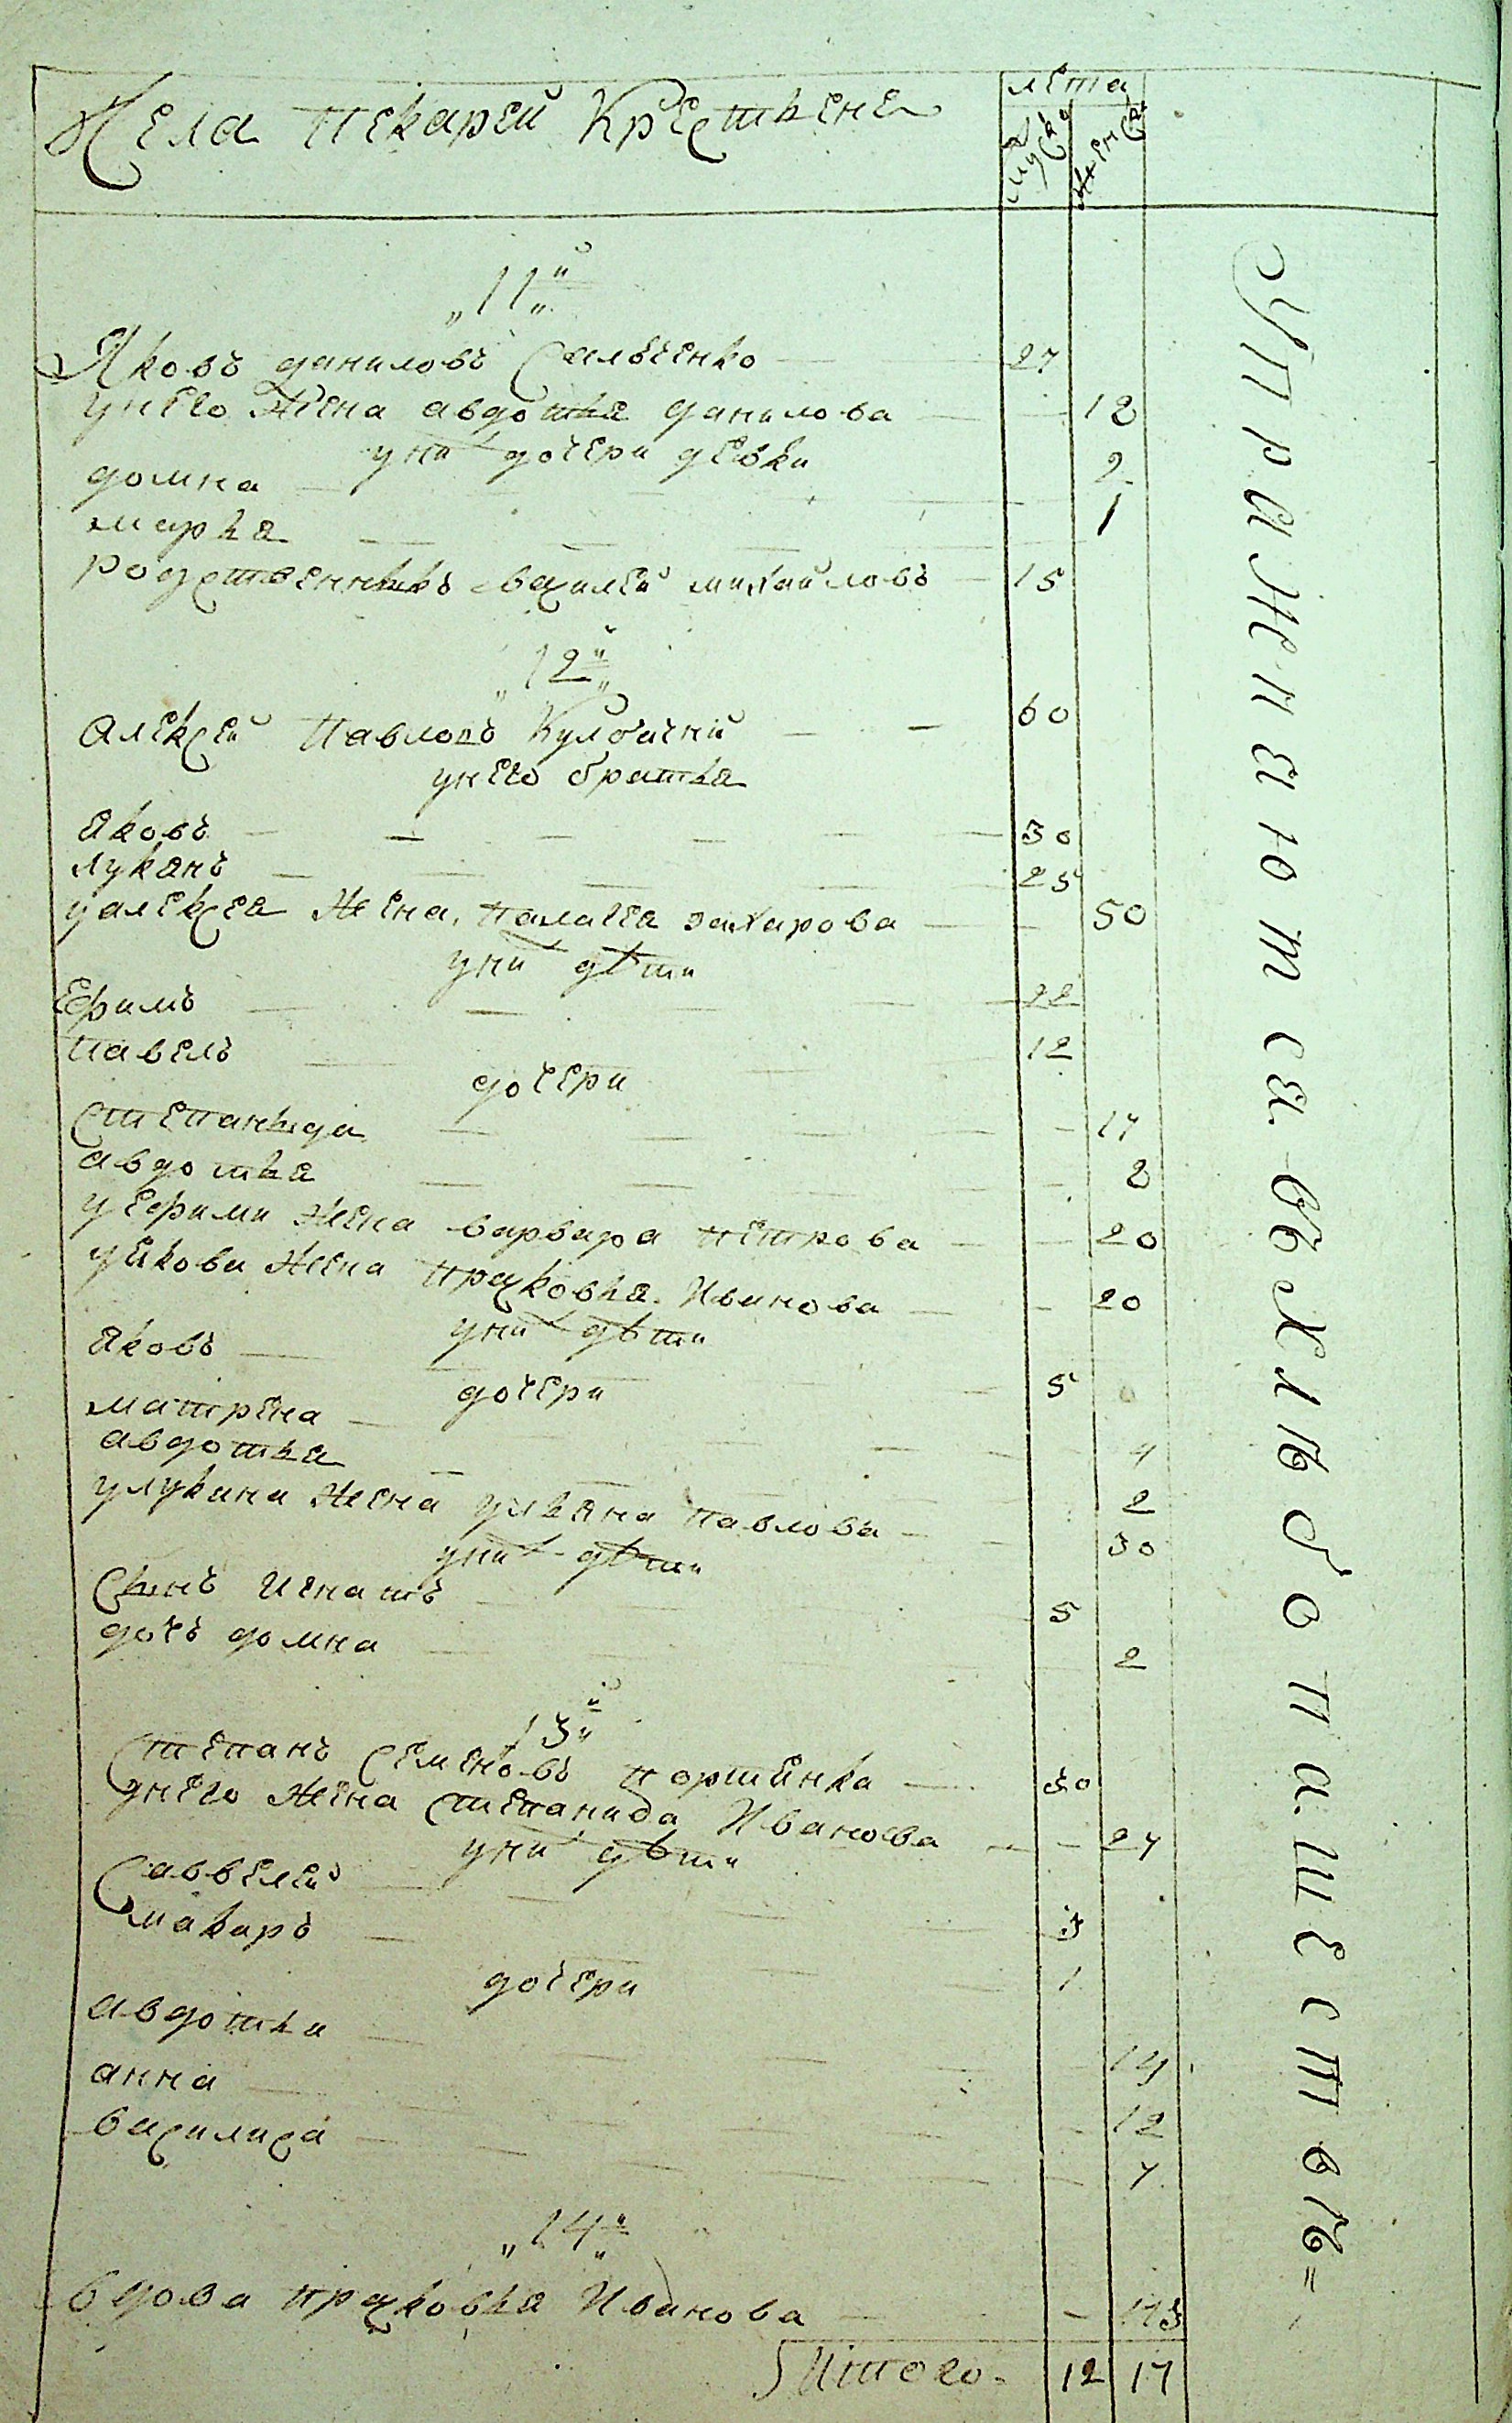 Села Пекарей Крестьяне
лета
муска
женска
„11й„
Яковъ даниловъ Савченко 27
унего Жена авдотья данилова 18
уни дочери девки
домна 2
марья 1
родственникъ василей михайловъ 15
„12й„
алексей Павловъ Кулбачни 60
унего братья
Яковъ 30
лукянъ 25
уалексея Жена Палагея захарова 50
уни дѣти
Ефимъ 22
Павелъ 12
дочери
Степанида 17
авдотья 8
уефима Жена варвара Петрова 20
уякова Жена Прасковья Иванова 20
уни дѣти
Яковъ 5
дочери
матрена 4
авдотья 2
улукяна Жена ульяна Павлова 30
уни дѣти
Сынъ Игнатъ 5
дочъ домна 2
13й
Степанъ Семеновъ портянка 30
унего Жена Степанида Иванова 27
уни дѣти
Саввелей 3
макаръ 1
дочери
авдотья 14
анна 12
василиса 7
„14й„
вдова Прасковья Иванова
Итого 12 17
Упражняютса въ Хлѣбопашествѣ